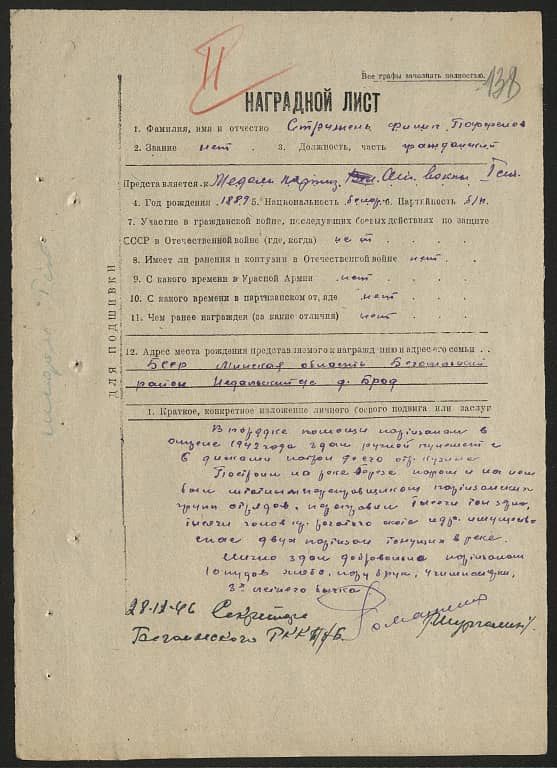 II
138
Все графы заполнять полностью.
НАГРАДНОЙ ЛИСТ
1. Фамилия, имя и отчество Стружень Филип
2. Звание нет. 3. Должность, часть гражданский
Представляется к Медали партиз. войны
4. Год рождения 1889 5. Национальность белор. 6. Партийность б/п.
7. Участие в гражданской войне, последующих боевых действиях по защите
СССР в Отечественной войне (где, когда) нет
8. Имеет ли ранения и контузии в Отечественной войне нет.
9. С какого времени в Красной Армии нет
10. С какого времени в партизанском отряде нет
11. Чем ранее награжден (за какие отличия) нет
12. Адрес места рождения представляемого к награждению и адрес его семьи
БССР Минская область Бегомльский
район д. Брод
1. Краткое, конкретное изложение личного боевого подвига или заслуг
В порядке помощи партизанам в
1942 года здал ручной пулемет с
6 дисками патрон
Построил на реке паром и на нем
был партизанских
групп отрядов, тысячи тон
тысячи голов рогатого скота и др. имущество
спас двух партизан тонущих в реке.
Лично здал добровольно партизанам
10 пудов хлеба, пару брук,
бычка
28-11-46 Секретарь
Бегомльского РК КП/б/Б.
ДЛЯ ПОДШИВКИ